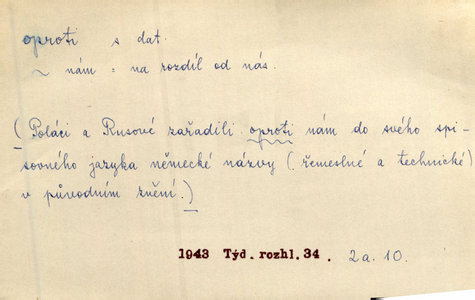 oproti s dat.
~ nám = na rozdíl od nás.
(Poláci a Rusové zařadili oproti nám do svého spi-
sovného jazyka německé názvy (řemeslné a technické)
v původním znění.)
1943 Týd. rozhl. 34. 2a. 10.